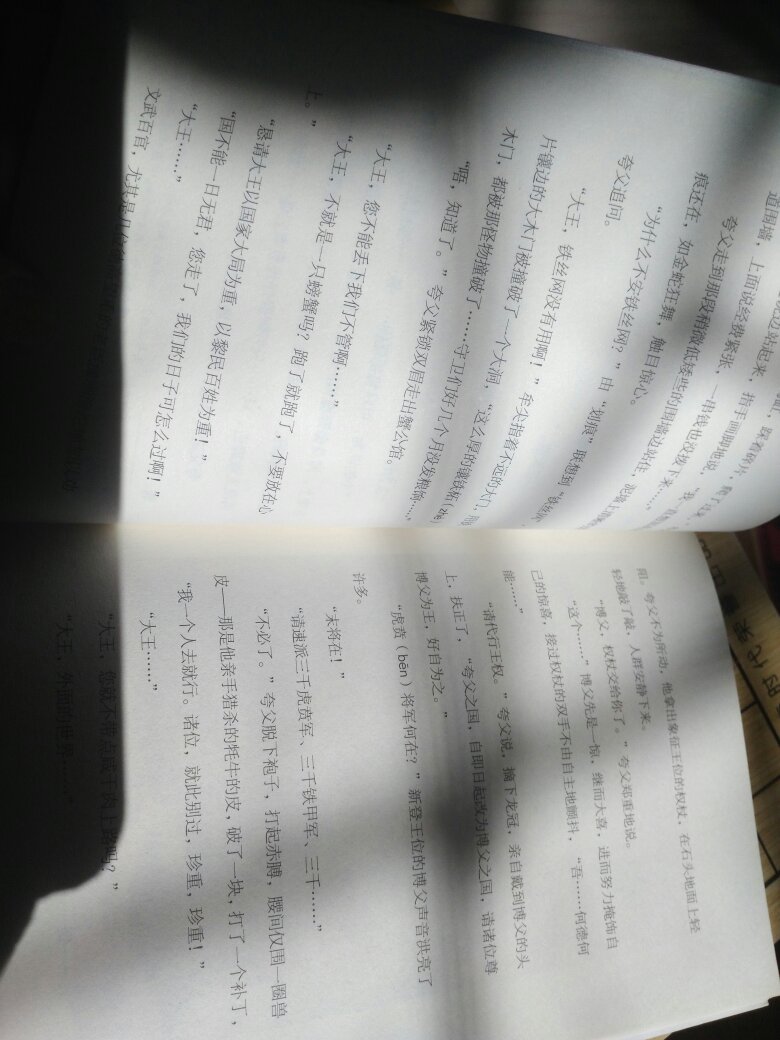 道围墙，上面说经费紧张，一串钱也没拨下来……”
夸父走到那段稍微低矮些的围墙边站住，
痕还在，如金蛇狂舞，触目惊心。
“为什么不安铁丝网？”由“划痕”联想到“铁丝网”，
夸父追问。
“大王，铁丝网没有用啊！”牟尖指着不远的大门，
片镶边的大木门被撞破了一个大洞，“这么厚的镶铁
木门，都被那怪物撞破了……守卫们好几个月没发粮饷……”
“唔，知道了。”夸父紧锁双眉走出蟹公馆。
“大王，您不能丢下我们不管啊……”
“大王，不就是一只螃蟹吗？跑了就跑了，不要放在心
上。”
“恳请大王以国家大局为重，以黎民百姓为重！”
“国不能一日无君，您走了，我们的日子可怎么过啊！”
“大王……”
文武百官，尤其是几个
阻。夸父不为所动，他拿出象征王位的权杖，在石头地面上轻
轻地敲了敲，人群安静下来。
“博父，权杖交给你了。”夸父郑重地说。
“这个……”博父先是一惊，继而大喜，进而努力掩饰自
己的惊喜，接过权杖的双手不由自主地颤抖，“吾……何德何
能……”
“请代行王权。”夸父说，摘下龙冠，亲自戴到博父的头
上，扶正了，“夸父之国，自即日起改为博父之国，请诸位尊
博父为王，好自为之。”
“虎贲（bēn）将军何在？”新登王位的博父声音洪亮了
许多。
“末将在！”
“请速派三千虎贲军、三千铁甲军、三千……”
“不必了。”夸父脱下袍子，打起赤膊，腰间仅围一圈兽
皮——那是他亲手猎杀的牦牛的皮，破了一块，打了一个补丁，
“我一个人去就行。诸位，就此别过，珍重，珍重！”
“大王……”
“大王，您就不带点咸干肉上路吗？”
“大王，外面的世界……”